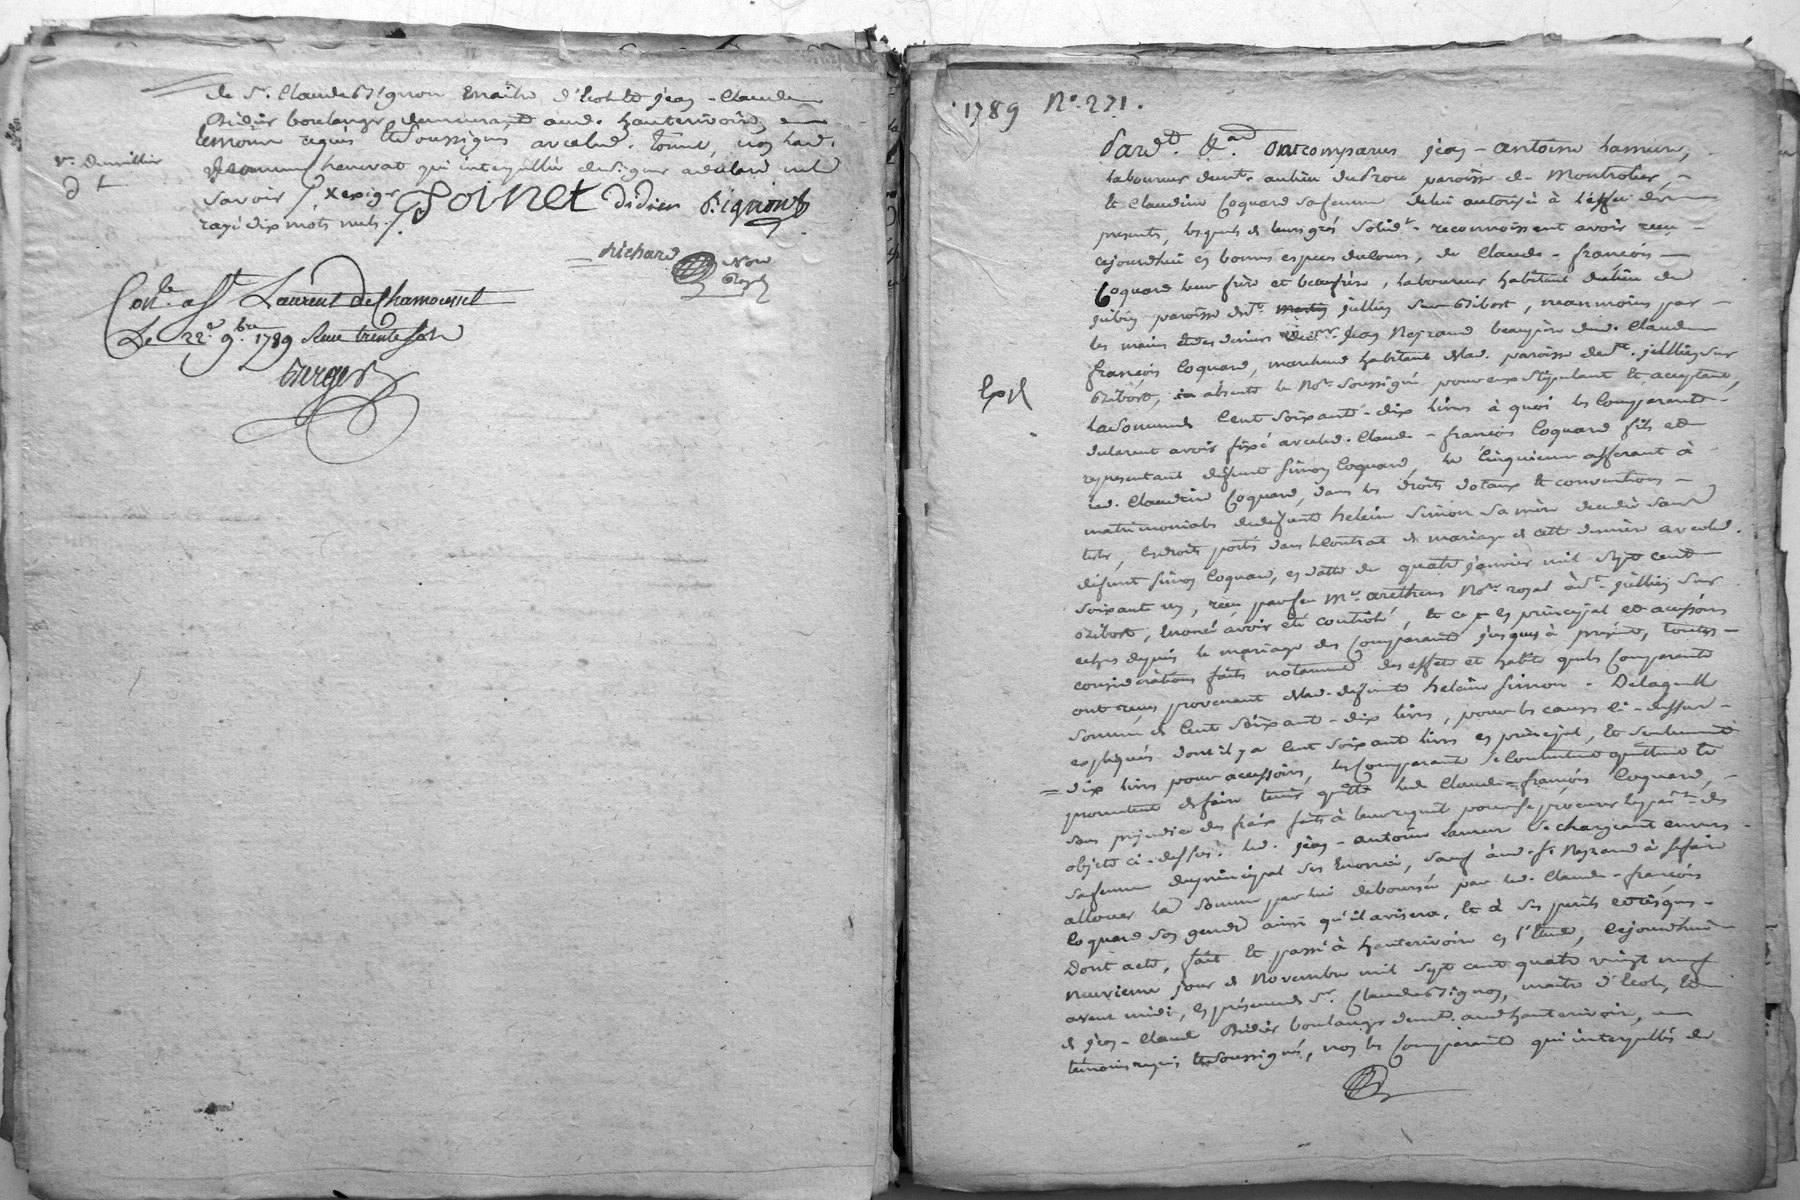 de Sr. Claude Pignon maître d'Ecole & jean-Claude
Didier boulanger demeurant aud. hauterivoire
temoins requis & Soussignés avec led. non led.
henevat qui interpellé de signer a declaré ne le
savoir /. x exige
rayé dix mots nuls ./.
Poinet Didier Pignon
Richard Nore
Royal
Con.le a St. Laurent de Chamousset
Le 22.e 9.bre 1789 Reçu trente sols
Berger
1789 No. 271.
Pardt. &.a ont comparus jean-antoine
laboureur demt. au lieu du paroisse de Montrotier,
& Claudine Coquard sa femme de lui autorisée à l'effet des
presentes, lesquels de leurs grés solidt. reconnoissent avoir reçu
cejourdhui en bonnes especes de cours, de Claude-françois
Coquard leur frere et beaufrere, laboureur habitant du lieu de
paroisse de St. jullien sur Bibost, neanmoins par
les mains & des deniers de Sr. jean Neyrand beaupère dud. Claude
françois Coquard, marchand habitant de lad. paroisse de St. jullien sur
Expé
Bibost, absents le Nore. soussigné pour eux stipulant & acceptant,
la somme de Cent soixante-dix livres à quoi les Comparants
declarent avoir fixé avec led. Claude-françois Coquard fils et
representant defunt Simon Coquard, le Cinquieme afferant à
lad. Claudine Coquard, dans les droits dotaux & conventions
matrimoniales de defunte helaine Simon sa mère decedée sans
tester, lesdroits portés dans le Contrat de mariage de cette derniere avec led.
defunt Simon Coquard, en datte du quatre janvier mil sept cent
soixante un, reçu par feu Me. Nore. royal à St. jullien sur
Bibost, énoncé avoir été controlé, & ce en principal et accessoires
echus depuis le mariage des Comparants jusques à present, toutes
considerations faites notamment des effets et habits que les Comparants
ont reçus provenant de lad. defunte helaine Simon. De laquelle
somme de Cent soixante-dix livres, pour les causes ci-dessus
expliquées dont il y a Cent soixante livres en principal, & seulement
dix livres pour accessoires, les Comparants se contentent quittent &
promettent de faire tenir quitte led. Claude-françois Coquard,
sans prejudice des fraix faits à leur requête pour se procurer le payemt. des
objets ci-dessus. led. jean-antoine se chargeant envers
sa femme du principal sus énoncé, sauf aud. Sr. Neyrand à se faire
allouer lad. somme par lui deboursée par led. Claude-françois
Coquard son gendre ainsi qu'il avisera, & à ses perils et risques.
Dont acte, fait & passé à hauterivoire en l'Etude, Cejourdhui
neuvieme jour de Novembre mil sept cent quatre vingt neuf
avant midi, en présence de Sr. Claude Pignon, maitre d'Ecole, &
de jean-Claude Didier boulanger demt. aud. hauterivoire,
témoins requis & soussignés, non les Comparants qui interpellés de